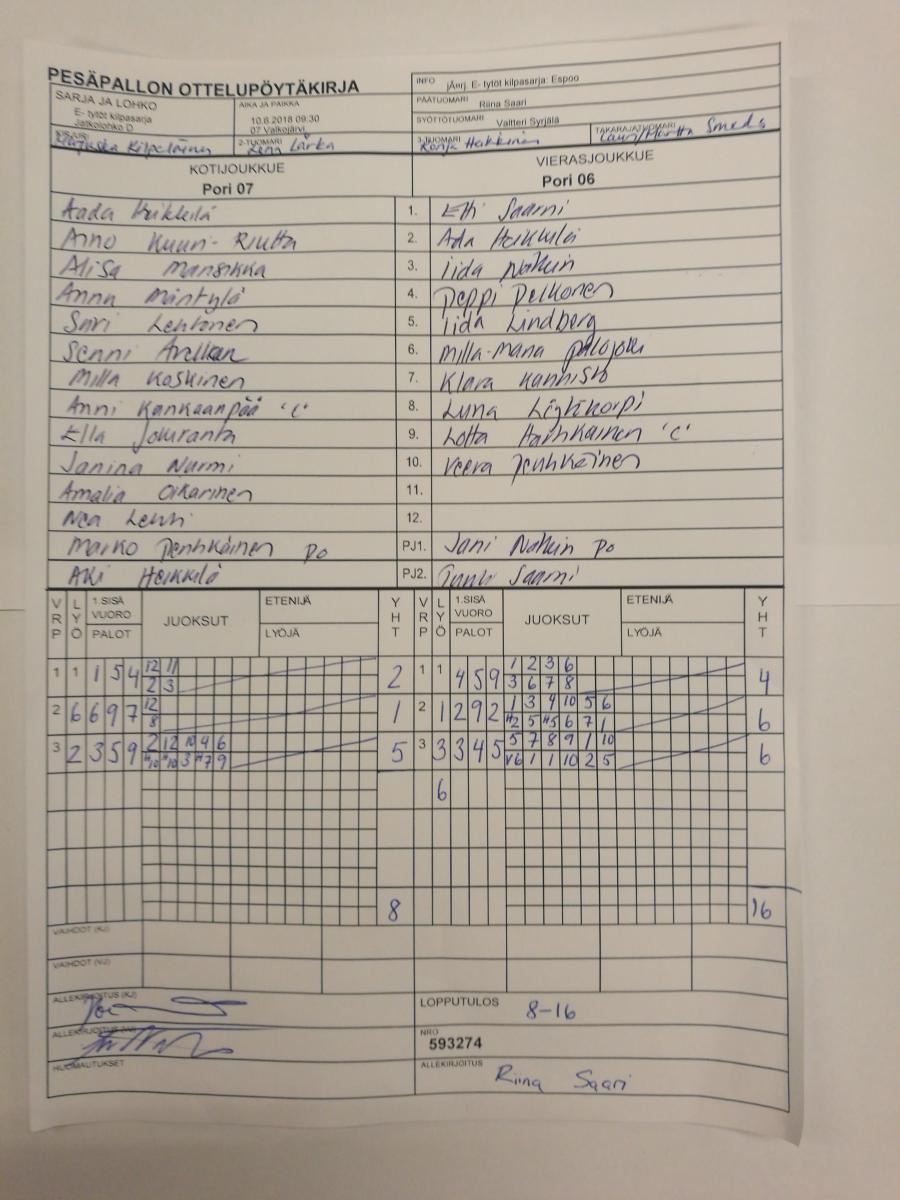 PESÄPALLON OTTELUPÖYTÄKIRJA
INFO jÄrrj. E- tytöt kilpasarja: Espoo
SARJA JA LOHKO
E- tytöt kilpasarja
Jatkolohko D
AIKA JA PAIKKA
10.6.2018 09:30
07 Valkojärvi
PÄÄTUOMARI Riina Saari
SYÖTTÖTUOMARI Valtteri Syrjälä
Kilpeläinen
2-TUOMARI Lärka
3-TUOMARI Ronja Heikkinen
TAKARAJATUOMARI Smeds
KOTIJOUKKUE
Pori 07
VIERASJOUKKUE
Pori 06
Aada Heikkilä 1. Elli Saarni
Aino Kuuri-Riutta 2. Ada Heikkilä
Alisa Mansikka 3. Iida Nahkin
Anna Mäntylä 4. Peppi Pelkonen
Sari Lehtonen 5. Iida Lindberg
Senni Arellan 6. Milla-Maria Palojoki
Milla Koskinen 7. Klara Kannisto
Anni Kankaanpää 'C' 8. Luna Löytökorpi
Ella Jokiranta 9. Lotta 'C'
Janina Nurmi 10. Veera Penhkäinen
Amalia Oikarinen 11.
Nea Lehti 12.
Marko Penhkäinen PO PJ1. Jani Nahkin PO
Aki Heikkilä PJ2. Saarni
VRP LYÖ 1.SISÄ VUORO PALOT JUOKSUT ETENIJÄ LYÖJÄ YHT VRP LYÖ 1.SISÄ VUORO PALOT JUOKSUT ETENIJÄ LYÖJÄ YHT
12 11 1 2 3 6
1 1 1 5 4 2 1 1 4 5 9 4
2 3 3 6 7 8
12 1 3 4 10 5 6
2 6 6 9 7 1 2 1 2 9 2 6
8 H2 5 H5 6 7 1
2 12 10 4 6 5 7 8 9 1 10
3 2 3 5 9 5 3 3 3 4 5 6
H10 H10 3 H7 9 V6 1 1 10 2 5
6
8 16
VAIHDOT (KJ)
VAIHDOT (VJ)
ALLEKIRJOITUS (KJ)
LOPPUTULOS 8-16
ALLEKIRJOITUS (VJ)
NRO
593274
HUOMAUTUKSET
ALLEKIRJOITUS Riina Saari